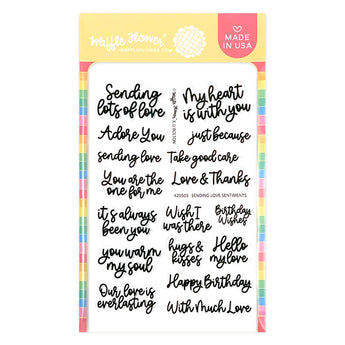 Waffle Flower®
WAFFLEFLOWER.COM
MADE
IN USA
Sending
lots of love
My heart
is with you
Adore You
just because
sending love
Take good care
You are the
one for me
Love & Thanks
420503 SENDING LOVE SENTIMENTS
it's always
been you
Wish I
was there
Birthday
Wishes
you warm
my soul
hugs &
kisses
Hello
my love
Our love is
everlasting
Happy Birthday
With Much Love